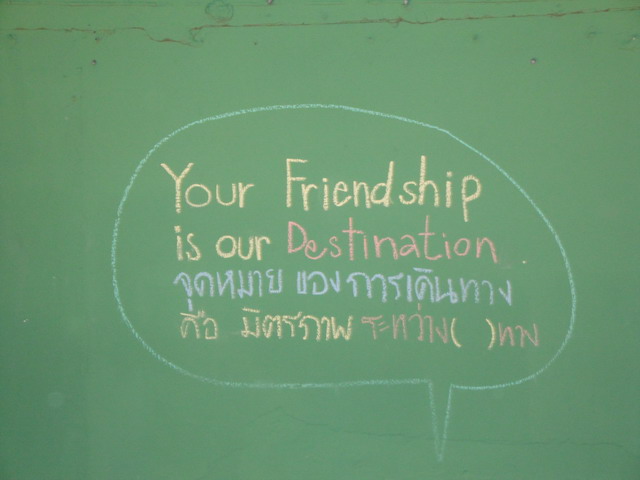 Your Friendship
is our Destination
จุดหมาย ของ การเดินทาง
คือ มิตรภาพ ระหว่าง( )ทาง